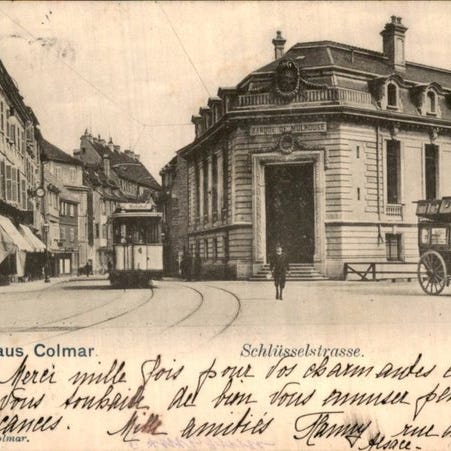 BANQUE DE MULHOUSE
aus Colmar.
Schlüsselstrasse.
Merci mille fois pour vos charmantes
Vous souhaite de bien vous amuser
Mille amitiés Fanny rue
Colmar.
Alsace.